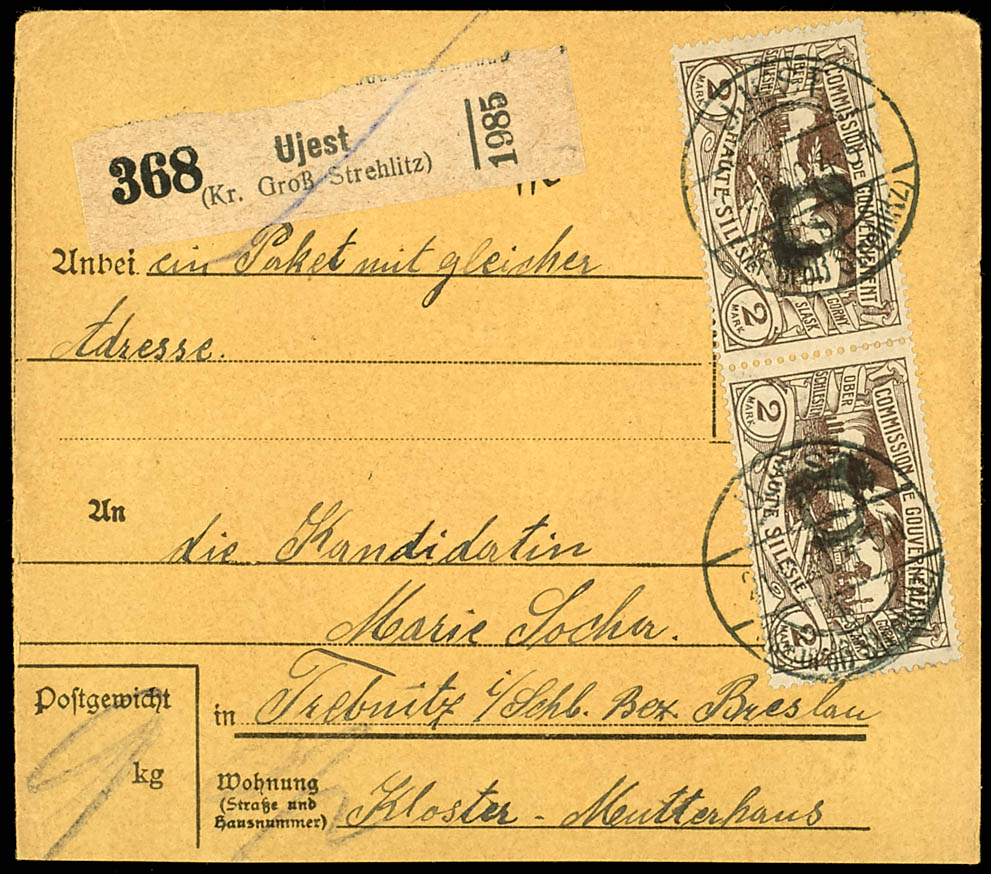 368
Ujest
(Kr. Groß Strehlitz)
1985
Anbei ein Paket mit gleicher
Adresse.
An
die Kandidatin
Marie Socher.
in Trebnitz i/Schl. Bez. Breslau
Wohnung
(Straße und
Hausnummer)
Kloster - Mutterhaus
Postgewicht
kg
COMMISSION DE GOUVERNEMENT
HAUTE-SILESIE
OBER
SCHLESIEN
GÓRNY
ŚLĄSK
2
MARK
2
MARK
COMMISSION DE GOUVERNEMENT
HAUTE SILESIE
OBER
SCHLESIEN
2
MARK
2